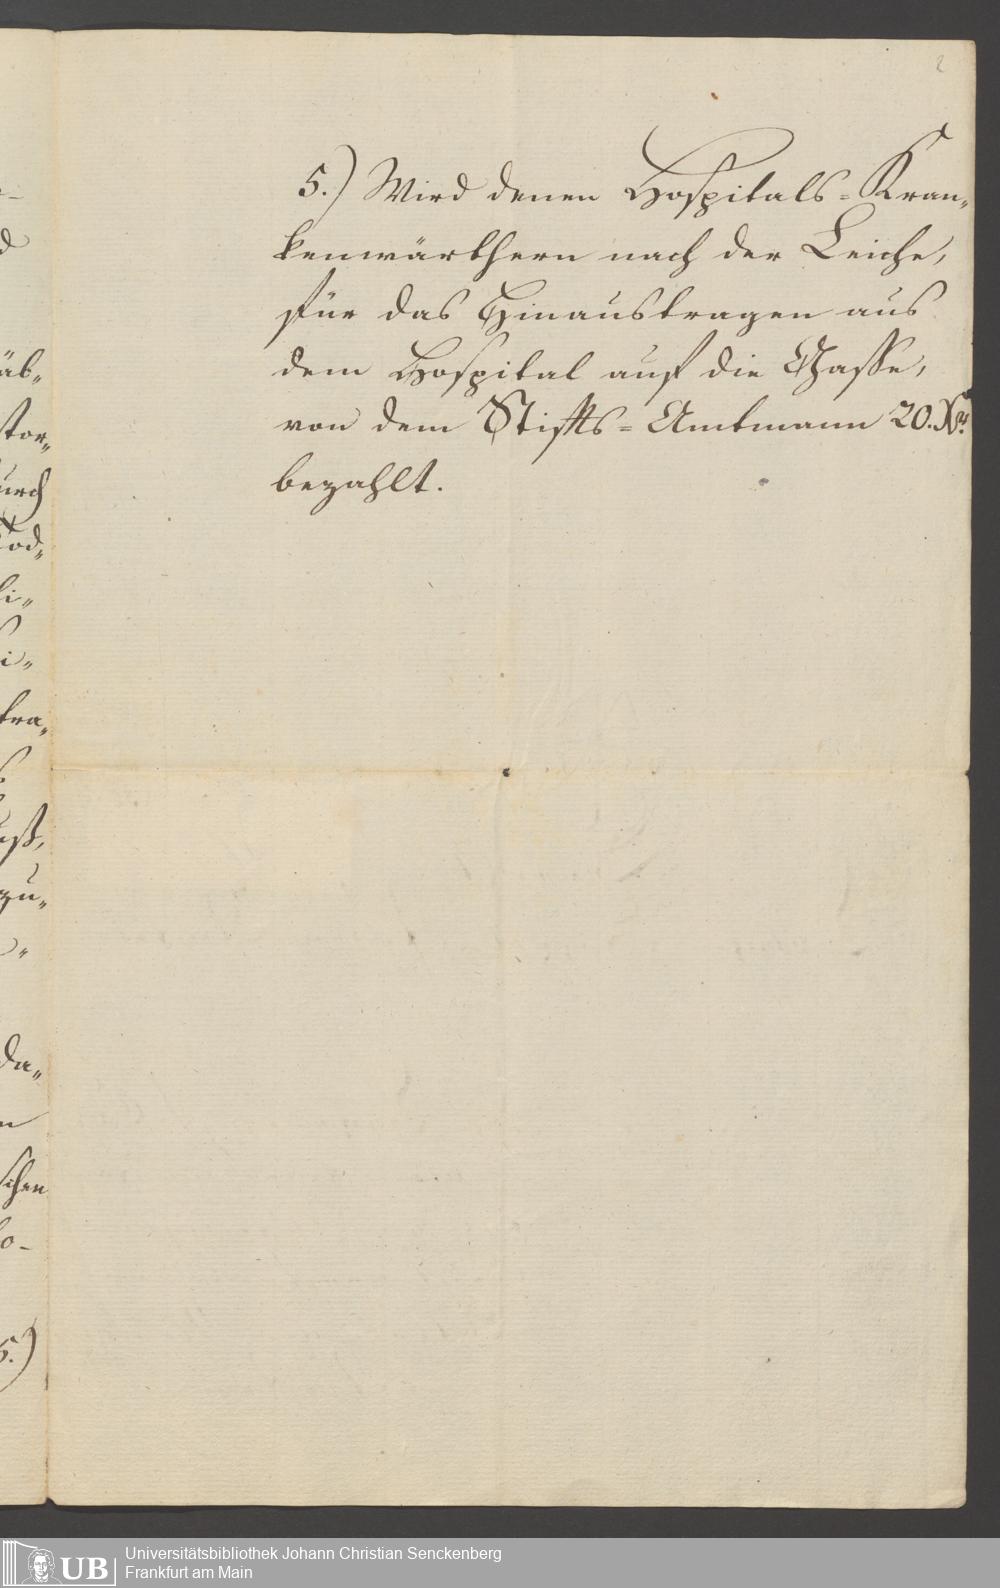 2
5.) Wird denen Hospitals=Kran„
kenwärthern nach der Leiche,
für das Hinaustragen aus
dem Hospital auf die Gasse,
von dem Stiffts=Amtmann 20. Xr.
bezahlt.
d
äb„
stor„
urch
Tod„
li„
i„
tra„
uß,
zu„
da„
n
schen
so-
5.)
UB
Universitätsbibliothek Johann Christian Senckenberg
Frankfurt am Main